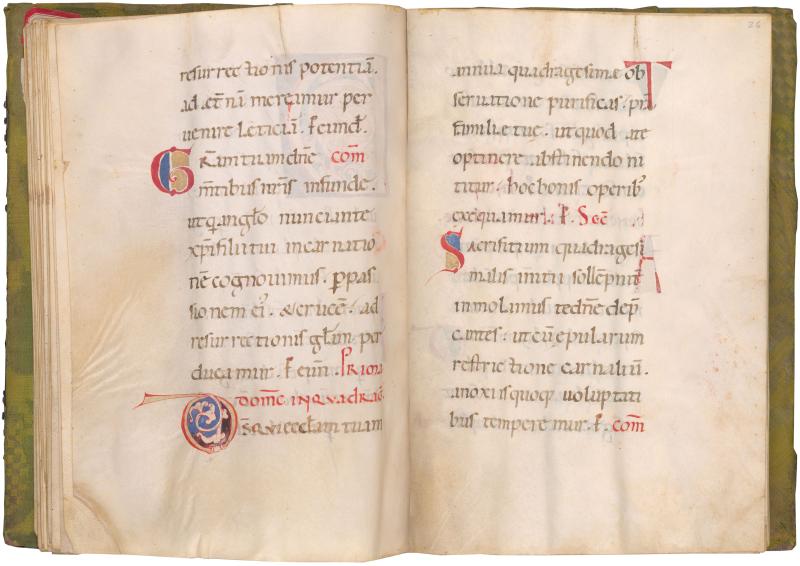 resurrectionis potentiā.
ad etnā mereamur per
uenire leticiā. P eund̄.
Grām tuam dn̄e com̄
m̄tibus nr̄is infunde.
ut q angl̄o nunciante
xp̄i filii tui incarnatio
nē cognouimus. p pas
sionem ei' & crucē. ad
resurrectionis gl̄am per
ducamur. P eun̄. Prima
dom̄c in quadrag
D̄s qui eccl̄am tuam
26
annua quadragesimae ob
seruatione purificas. pr̄a
familie tue. ut quod a te
optinere abstinendo ni
titur. hoc bonis operib'
exequamur. P. Sec̄
Sacrificium quadragesi
malis initii sollēpnit̄
immolamus te dn̄e dep̄
cantes. ut cū epularum
restrictione carnaliū.
a noxiis quoq; uoluptati
bus temperemur. P. com̄